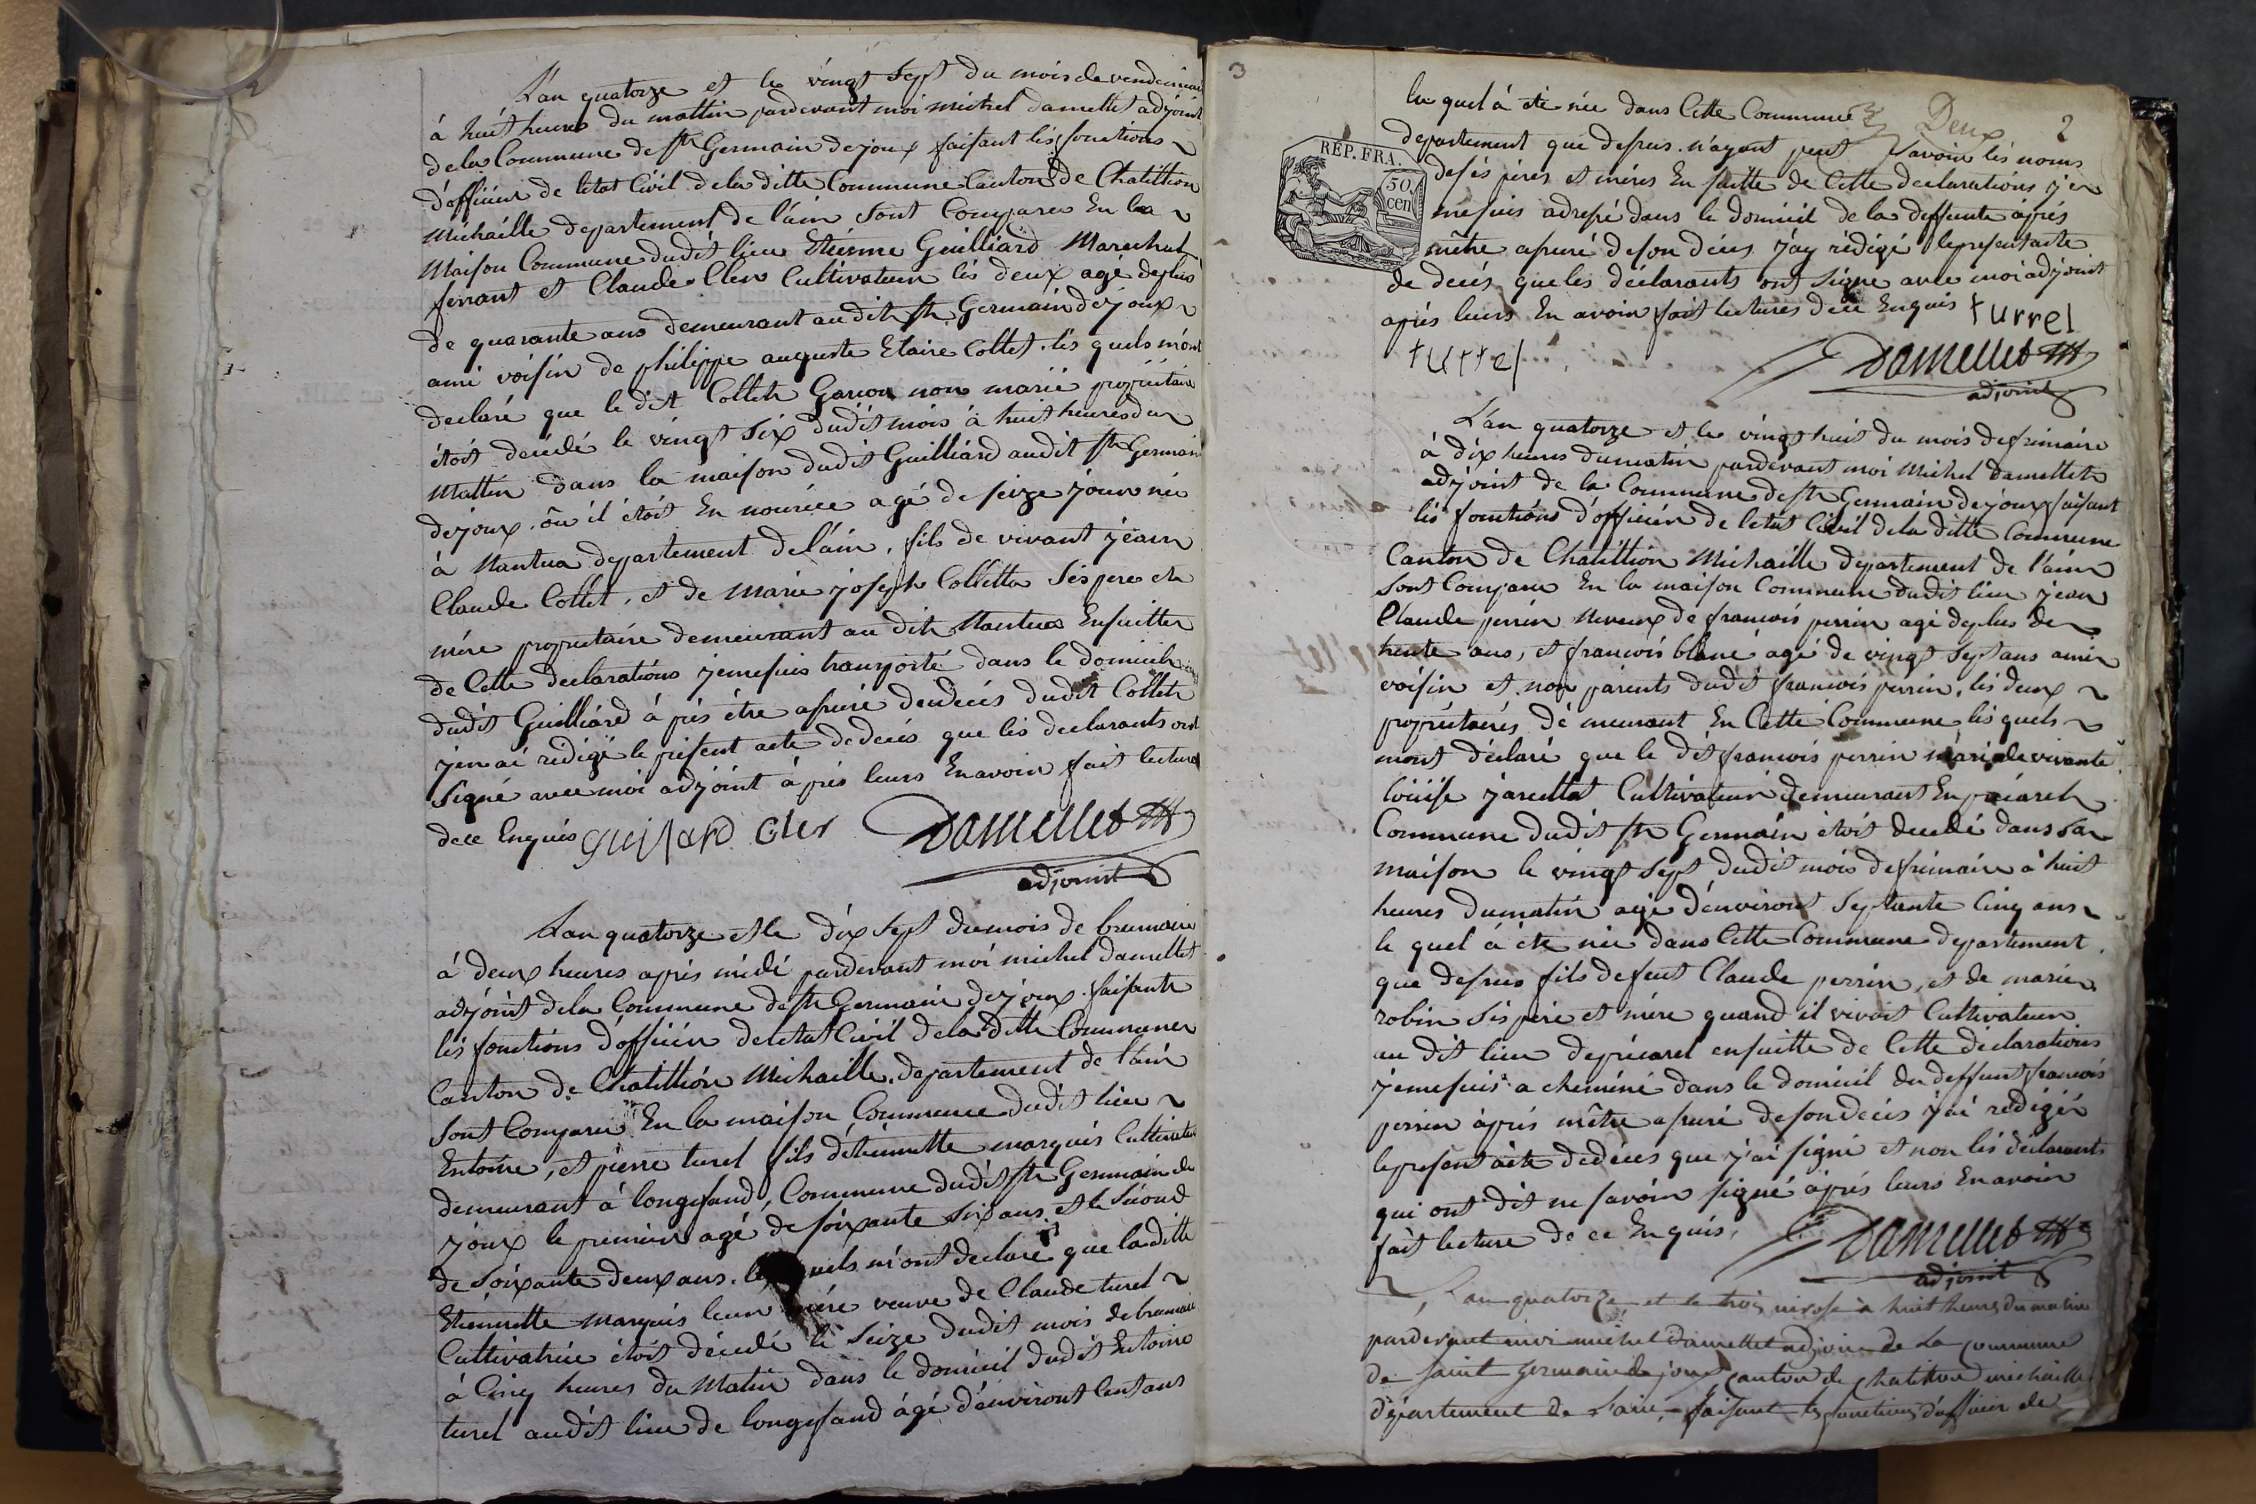 L'an quatorze et le vingt sept du mois de vendemiai
à huit heures du mattin pardevant moi michel damellet adjoint
de la Commune de st Germain dejoux faisant lés fonctions
d'officier de letat Civil de la ditte Commune Canton de Chatillion
Michaille departement de l'ain sont Comparu En la
Maison Commune dudit lieu Etienne Guilliard Marechal
ferrant et Claude Cler Cultivateur lés deux agé deplus
de quarante ans demeurant au dit st Germain dejoux
ami voisin de philippe auguste Elaire Collet. lés quels m'ont
declaré que le dit Collet Garcon non marié propriétaire
étoit decédé le vingt six dudit mois à huit heures du
Mattin dans la maison dudit Guilliard audit st Germain
dejoux. ôu il étoit En nouricce agé de seize jours né
à Nantua departement de l'ain, fils de vivant jéan
Claude Collet, et de Marie joseph Colletta sés pere et
mére proprietaire demeurant au dit Nantua Ensuitte
de Cette declarations jemesuis transporté dans le domicile
dudit Guilliard à prés étre assuré dudecés dudit Collet
j'en ai rédigé le présent acte dedecés que lés declarants ont
Signé avec moi adjoint àprés leurs Enavoir fait lecture
dece Enquis guillard Cler Damellet
adjoint
Lan quatorze et le dix sept dumois de brumaire
à deux heures aprés midi pardevant moi michel damellet
adjoint dela Commune de st Germain dejoux. faisant
lés fonctions d'officier de letat Civil dela ditte Commune
Canton de Chatillión Michaille. departement de l'ain
sont Comparu En la maison Commune dudit lieu
Entoine, et pierre turel fils d'étiennette marquis Cultivateur
demeurant à longefand, Commune dudit st Germain de
joux le premier agé de soixante six ans et le sécond
de Soixante deux ans. les quels m'ont declaré que la ditte
Etiennette marquis leur mére veuve de Claude turel
Cultivatrice étoit décedé le seize dudit mois debrumaire
à Cinq heures du Matin dans le domicil dudit Entoine
turel audit lieu de longefand ágé d'environt Cent ans
3
le quel à été née dans Cette Commune Deux 2
departement que dessus. n'ayant peut savoir lés noms
desés péres et méres En suitte de Cette declarations j'en
mesuis adressé dans le domicil de la deffunte áprés
mêtre assuré deson décés j'ay rédigé lepresent acte
de decés que les déclarants ont signe avec moi adjoint
aprés leurs En avoir fait lectures dece Enquis turrel
turrel Damellet
adjoint
RÉP. FRA.
50
cen
L'an quatorze et le vingt huit du mois defrimaire
à dix heures dumatin pardevant moi Michel Damellet
adjoint de la Commune de st Germain dejoux faisant
lés fonctions d'officier de letat Civil dela ditte Commune
Canton de Chatillion Michaille departement de l'ain
sont Comparu En la maison Commune dudit lieu jean
Claude perrin Neveux de francois perrin agé deplus de
trente ans, et francois blanc agé de vingt sept ans amis
voisin et non parents dudit francois perrin, lés deux
propriétaires démeurant En Cette Commune lés quels
mont déclaré que le dit francois perrin mari de vivante
louise jarcellat Cultivateur demeurant En
Commune dudit st Germain étoit decedé dans sa
maison le vingt sept dudit mois defrimaire à huit
heures dumatin agé d'environt septante Cinq ans
le quel á été née dans Cette Commune departement
que dessus fils defeut Claude perrin, et de marie
robin sés pére et mére quand il vivoit Cultivateur
au dit lieu ensuitte de Cette declarations
jemesuis acheminé dans le domicil du deffunt francois
perrin áprés mêtre assuré desondecés j'ai redigér
lepresent acte dedéces que j'ai signé et non lés déclarants
qui ont dit ne savoir signé áprés leurs En avoir
fait lecture de ce Enquis, Damellet
adjoint
Lan quatorze et le trois nivose à huit heures du matin
pardevant moi michel Damellet adjoint de La commune
de saint germain de joux canton de chatillon michaille
département de l'ain, faisant les fonctions d'officier de